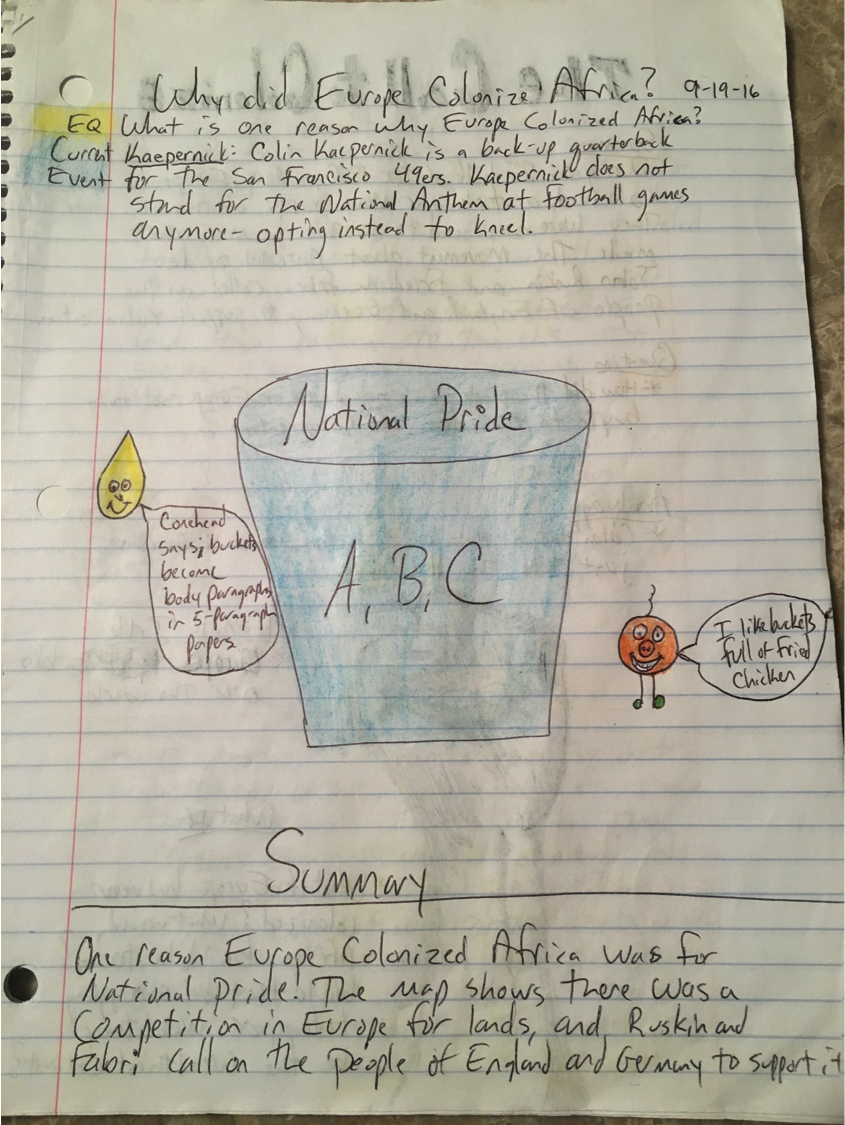 Why did Europe Colonize Africa? 9-19-16
EQ What is one reason why Europe Colonized Africa?
Current Kaepernick: Colin Kaepernick is a back-up quarterback
Event for the San Francisco 49ers. Kaepernick does not
stand for the National Anthem at football games
anymore- opting instead to kneel.
National Pride
A, B, C
Conehead
says: buckets
become
body paragraphs
in 5-paragraph
papers.
I like buckets
full of fried
chicken
Summary
One reason Europe Colonized Africa was for
National Pride. The map shows there was a
Competition in Europe for lands, and Ruskin and
Fabri call on the people of England and Germany to support it